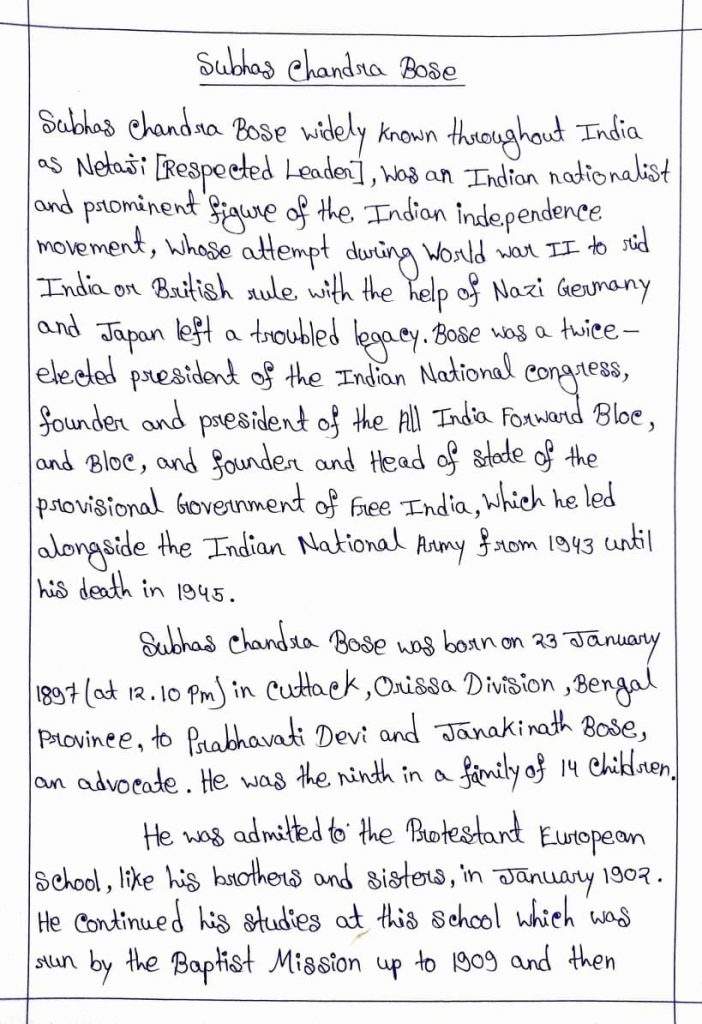 Subhas Chandra Bose
Subhas Chandra Bose widely known throughout India
as Netaji [Respected Leader], was an Indian nationalist
and prominent figure of the Indian independence
movement, whose attempt during World war II to rid
India or British rule with the help of Nazi Germany
and Japan left a troubled legacy. Bose was a twice-
elected president of the Indian National congress,
founder and president of the All India Forward Bloc,
and Bloc, and founder and Head of state of the
provisional Government of Free India, which he led
alongside the Indian National Army from 1943 until
his death in 1945.
Subhas Chandra Bose was born on 23 January
1897 (at 12.10 Pm) in Cuttack, Orissa Division, Bengal
Province, to Prabhavati Devi and Janakinath Bose,
an advocate. He was the ninth in a family of 14 Children.
He was admitted to the Protestant European
School, like his brothers and sisters, in January 1902.
He Continued his studies at this School which was
run by the Baptist Mission up to 1909 and then